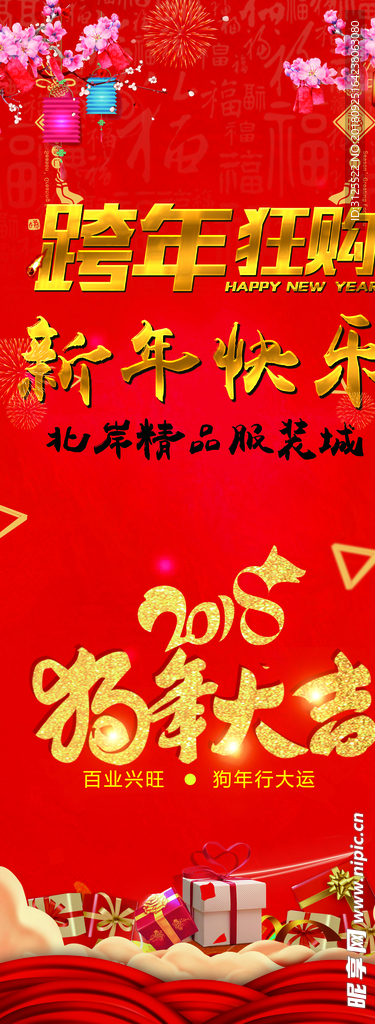 跨年狂购
HAPPY NEW YEAR
新年快乐
北岸精品服装城
2018
狗年大吉
百业兴旺 ● 狗年行大运
ID:3125522 NO:20180925164238063080
昵享网 www.nipic.cn